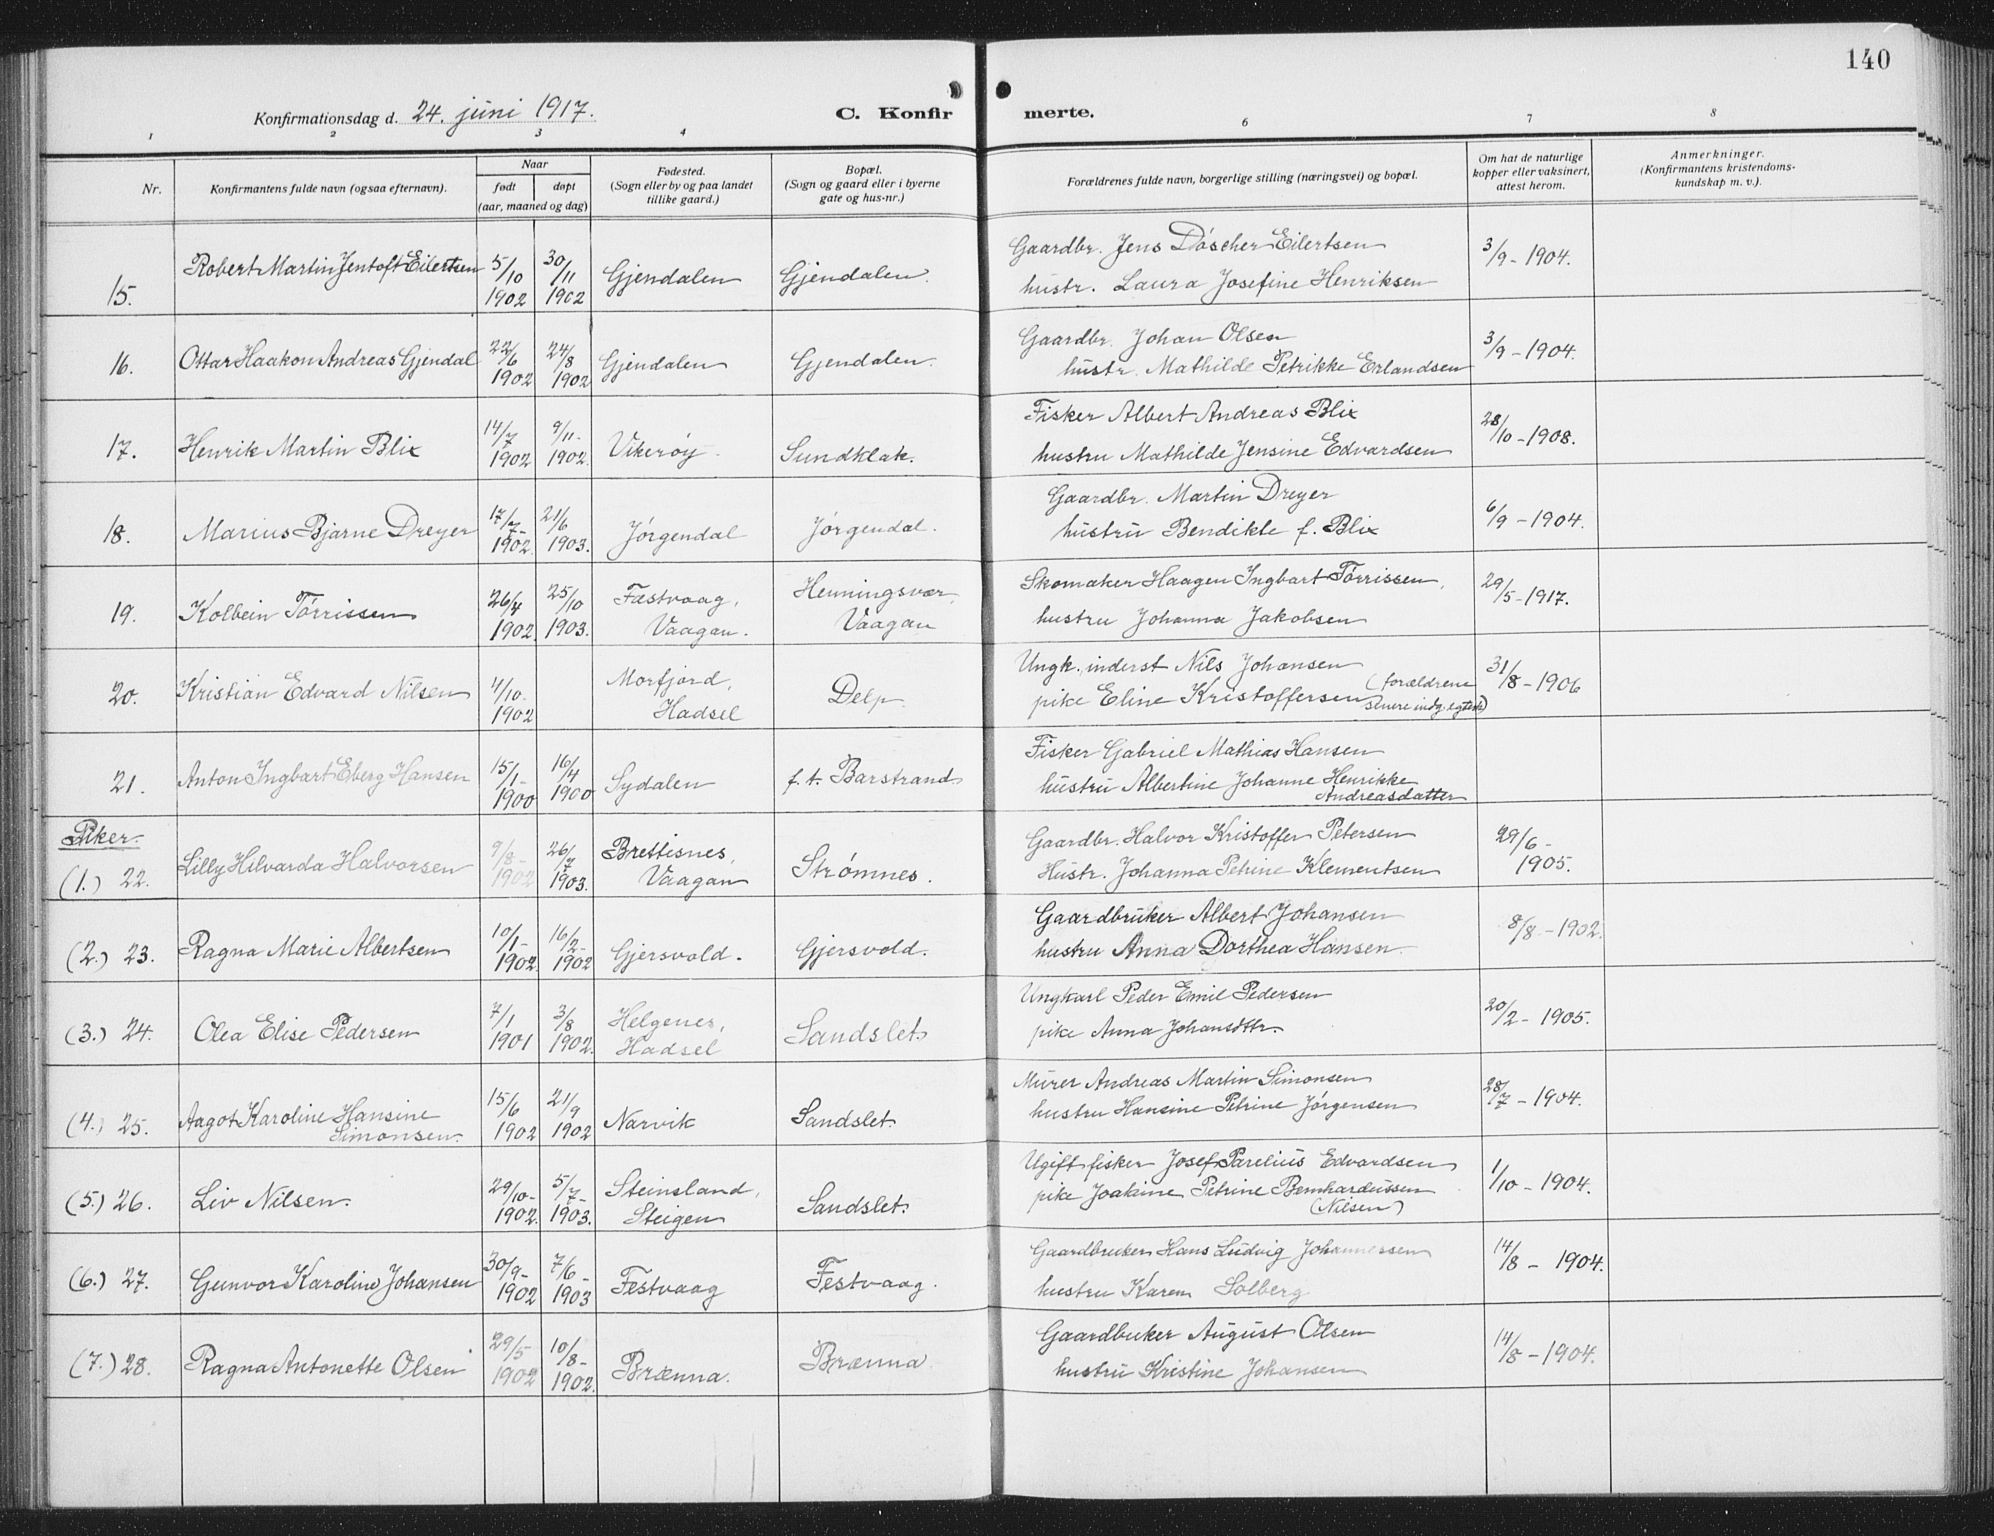 140
Konfirmationsdag d. 24. juni 1917.
C. Konfirmerte.
1 2 3 4 6 7 8
Nr.
Konfirmantens fulde navn (ogsaa efternavn).
Naar
født
døpt
(aar, maaned og dag)
Fødested.
(Sogn eller by og paa landet
tillike gaard.)
Bopæl.
(Sogn og gaard eller i byerne
gate og hus-nr.)
Forældrenes fulde navn, borgerlige stilling (næringsvei) og bopæl.
Om hat de naturlige
kopper eller vaksinert,
attest herom.
Anmerkninger.
(Konfirmantens kristendoms-
kundskap m. v.).
15. Robert Martin Jentoft Eilertsen 5/10 1902 30/11 1902 Gjendalen Gjendalen.
Gaardbr. Jens Döscher Eilertsen
hustr. Laura Josefine Henriksen
3/9 - 1904.
16. Ottar Haakon Andreas Gjendal 22/6 1902 24/8 1902 Gjendalen Gjendalen.
Gaardbr. Johan Olsen
hustr. Mathilde Petrikke Erlandsen
3/9 - 1904.
17. Henrik Martin Blix 14/7 1902 9/11- 1902. Vikerøy. Sundklak.
Fisker Albert Andreas Blix
hustru Mathilde Jensine Edvardsen
28/10 - 1908.
18. Marius Bjarne Dreyer 17/7- 1902. 21/6 1903. Jørgendal Jørgendal.
Gaardbr. Martin Dreyer
hustru Bendikte f. Blix
6/9 - 1904.
19. Kolbein Tørrissen 26/4 1902. 25/10 1903. Festvaag, Vaagan. Henningsvær, Vaagan
Skomaker Haagen Ingbart Tørrissen,
hustru Johanna Jakobsen
29/5 - 1917.
20. Kristian Edvard Nilsen 4/10. 1902 Morfjord, Hadsel Delp.
Ungk. inderst Nils Johansen
pike Eline Kristoffersen (forældrene
senere indg. egtesk)
31/8 - 1906
21. Anton Ingbart Eberg Hansen 15/1- 1900 16/4 1900 Sydalen f. t. Barstrand.
Fisker Gabriel Mathias Hansen
hustru Albertine Johanne Henrikke
Andreasdatter
Piker.
(1.) 22. Lilly Hilvarda Halvorsen 9/8- 1902 26/7 1903. Brettesnes, Vaagan Strømnes.
Gaardbr. Halvor Kristoffer Petersen
Hustr. Johanna Petrine Klementsen
29/6 - 1905.
(2.) 23. Ragna Marie Albertsen 10/1- 1902. 16/2- 1902 Gjersvold. Gjersvold.
Gaardbruker Albert Johansen
hustru Anna Dorthea Hansen.
8/8 - 1902.
(3.) 24. Olea Elise Pedersen 7/1 1901 3/8 1902. Helgenes, Hadsel Sandslet.
Ungkarl Peder Emil Pedersen
pike Anna Johansdtr.
20/2 - 1905.
(4.) 25. Aagot Karoline Hansine
Simonsen. 15/6 1902 21/9 1902 Narvik Sandslet.
Murer Andreas Martin Simonsen
hustru Hansine Petrine Jørgensen
28/7 - 1904.
(5.) 26. Liv Nilsen. 29/10- 1902. 5/7- 1903. Steinsland, Steigen Sandslet.
Ugift fisker Josef Parelius Edvardsen
pike Joakine Petrine Bernhardussen
(Nilsen)
1/10 - 1904.
(6.) 27. Gunvor Karoline Johansen 30/9- 1902 7/6- 1903 Festvaag Festvaag.
Gaardbruker Hans Ludvig Johannessen
hustru Karen Solberg
14/8 - 1904.
(7.) 28. Ragna Antonette Olsen 29/5 1902 10/8- 1902. Brænna. Brænna.
Gaardbuker August Olsen
hustru Kristine Johansen
14/8 - 1904.